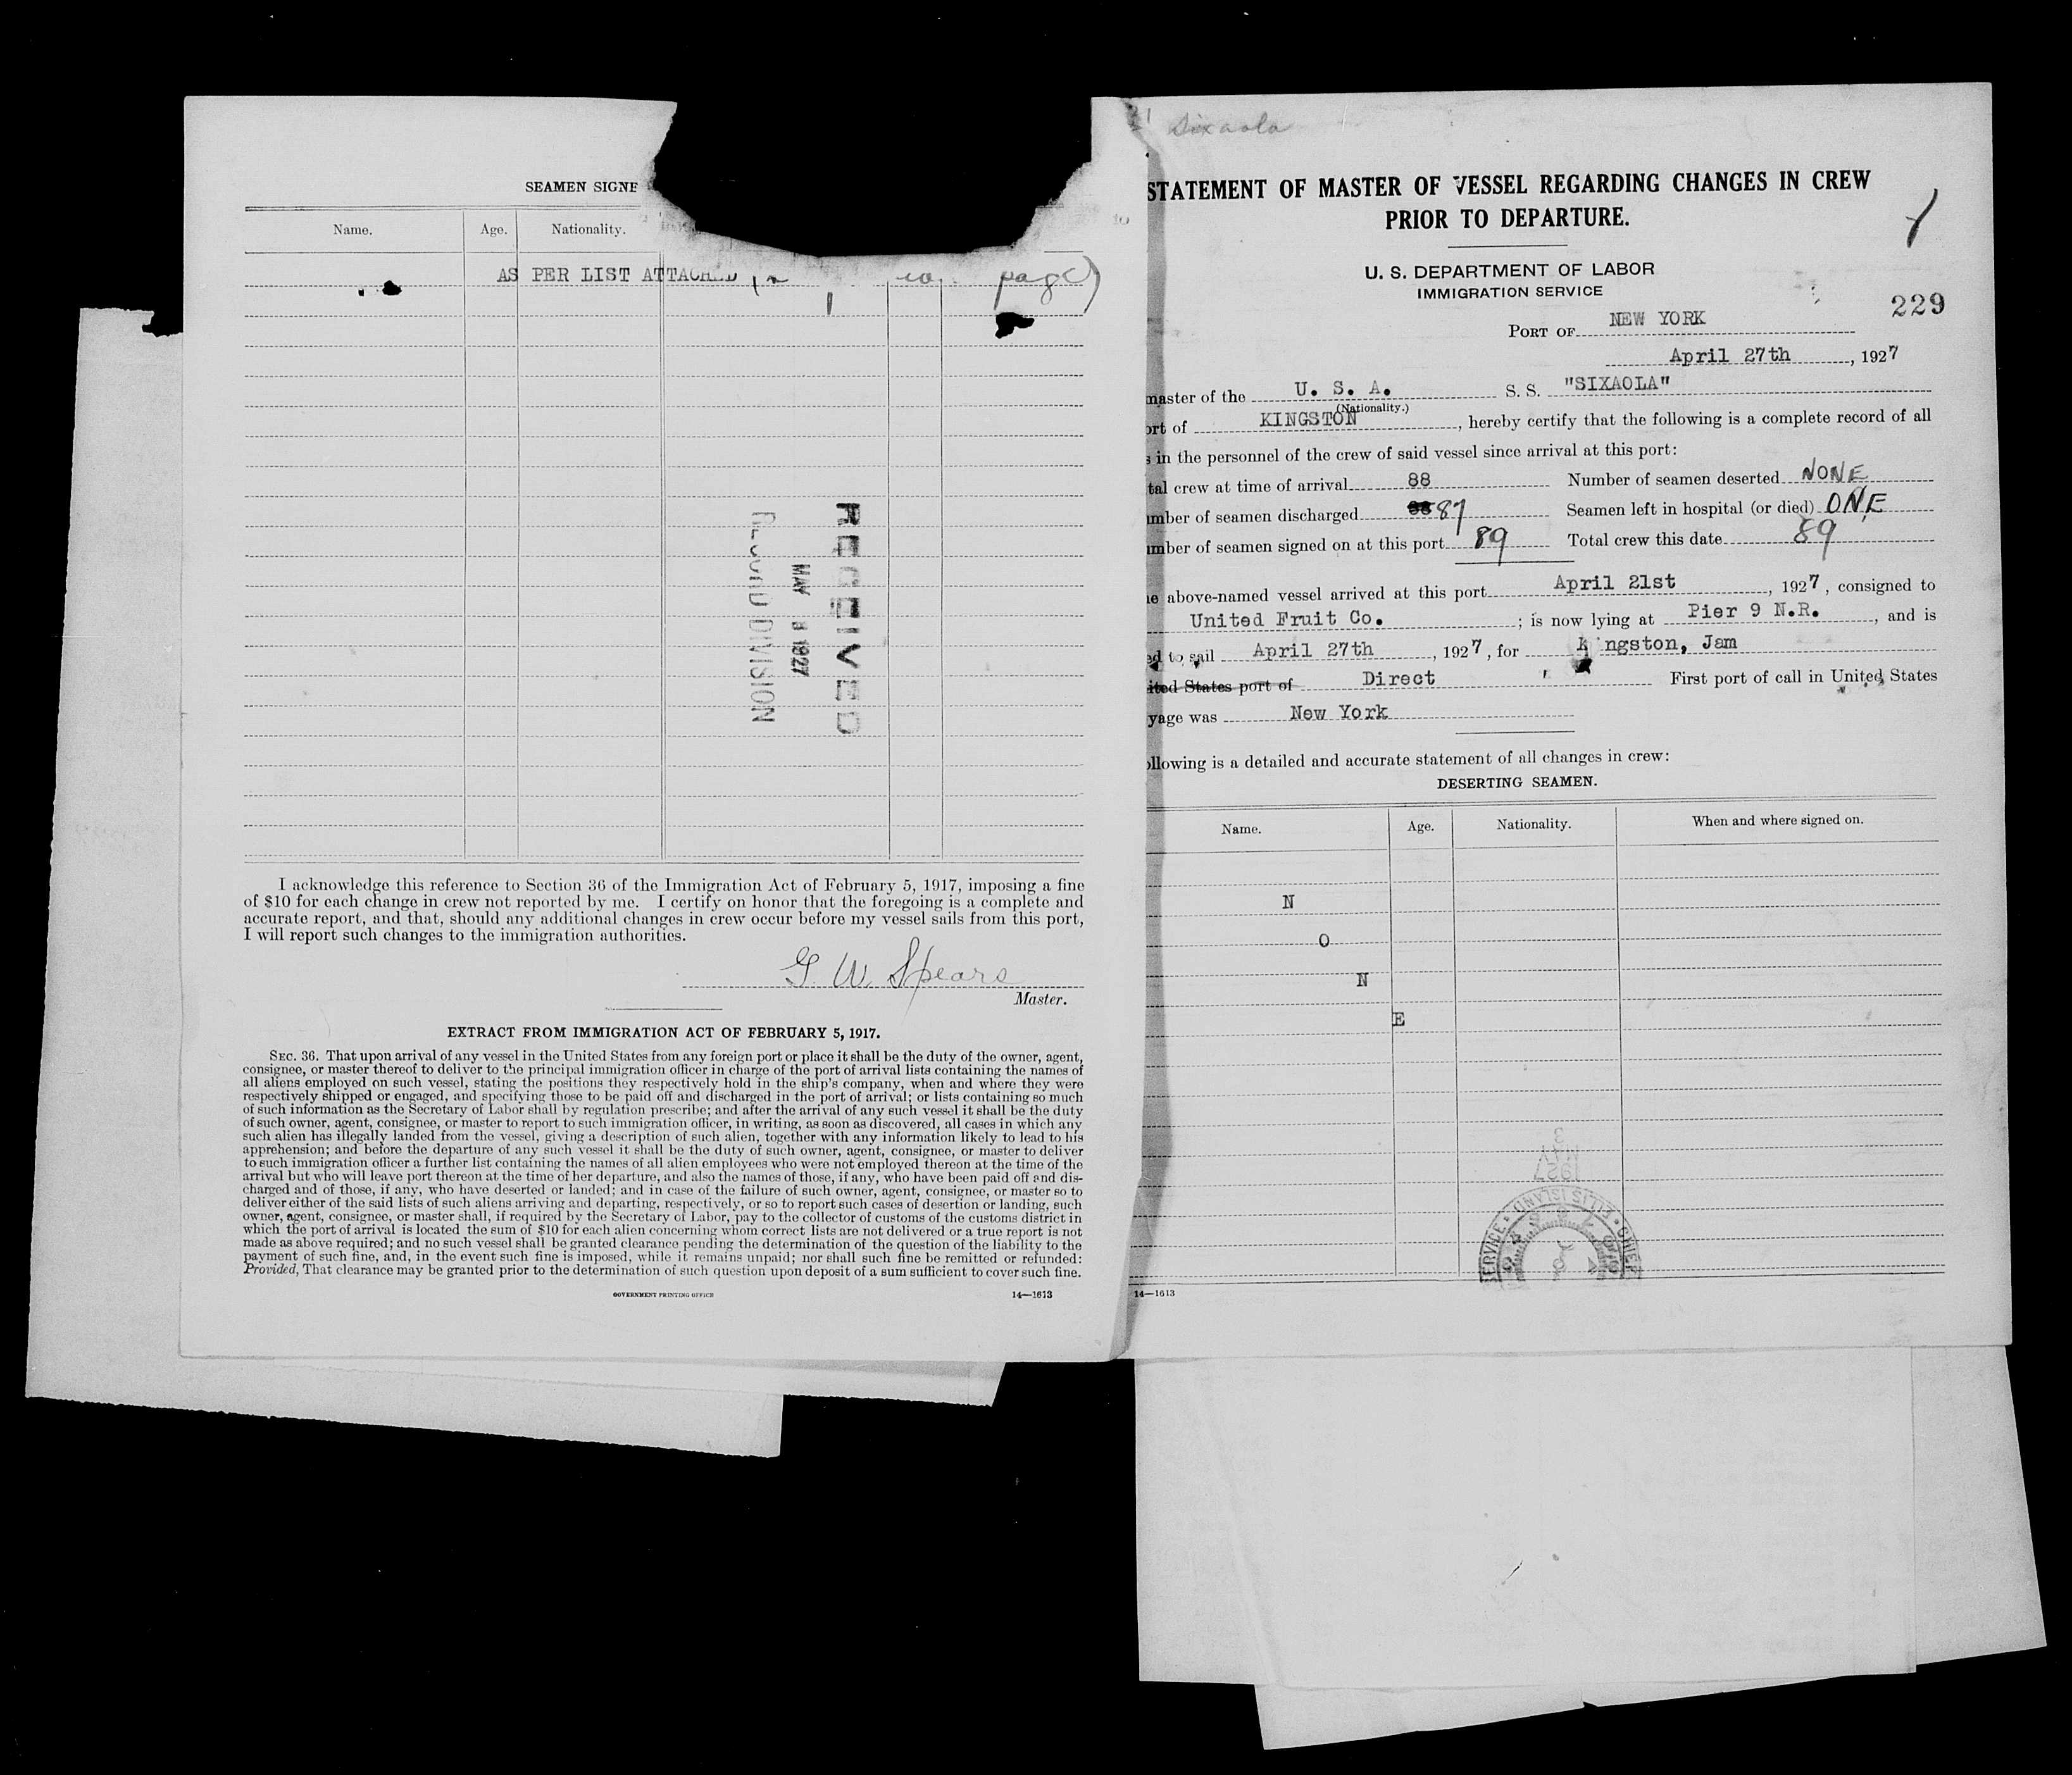 SEAMEN SIGNE
Name. Age. Nationality.
AS PER LIST ATTACHED page)
RECEIVED
MAY 3 1927
RECORD DIVISION
I acknowledge this reference to Section 36 of the Immigration Act of February 5, 1917, imposing a fine
of $10 for each change in crew not reported by me. I certify on honor that the foregoing is a complete and
accurate report, and that, should any additional changes in crew occur before my vessel sails from this port,
I will report such changes to the immigration authorities.
G. W. Spears
Master.
EXTRACT FROM IMMIGRATION ACT OF FEBRUARY 5, 1917.
SEC. 36. That upon arrival of any vessel in the United States from any foreign port or place it shall be the duty of the owner, agent,
consignee, or master thereof to deliver to the principal immigration officer in charge of the port of arrival lists containing the names of
all aliens employed on such vessel, stating the positions they respectively hold in the ship's company, when and where they were
respectively shipped or engaged, and specifying those to be paid off and discharged in the port of arrival; or lists containing so much
of such information as the Secretary of Labor shall by regulation prescribe; and after the arrival of any such vessel it shall be the duty
of such owner, agent, consignee, or master to report to such immigration officer, in writing, as soon as discovered, all cases in which any
such alien has illegally landed from the vessel, giving a description of such alien, together with any information likely to lead to his
apprehension; and before the departure of any such vessel it shall be the duty of such owner, agent, consignee, or master to deliver
to such immigration officer a further list containing the names of all alien employees who were not employed thereon at the time of the
arrival but who will leave port thereon at the time of her departure, and also the names of those, if any, who have been paid off and dis-
charged and of those, if any, who have deserted or landed; and in case of the failure of such owner, agent, consignee, or master so to
deliver either of the said lists of such aliens arriving and departing, respectively, or so to report such cases of desertion or landing, such
owner, agent, consignee, or master shall, if required by the Secretary of Labor, pay to the collector of customs of the customs district in
which the port of arrival is located the sum of $10 for each alien concerning whom correct lists are not delivered or a true report is not
made as above required; and no such vessel shall be granted clearance pending the determination of the question of the liability to the
payment of such fine, and, in the event such fine is imposed, while it remains unpaid; nor shall such fine be remitted or refunded:
Provided, That clearance may be granted prior to the determination of such question upon deposit of a sum sufficient to cover such fine.
GOVERNMENT PRINTING OFFICE 14—1613
Sixaola
STATEMENT OF MASTER OF VESSEL REGARDING CHANGES IN CREW
PRIOR TO DEPARTURE.
U. S. DEPARTMENT OF LABOR
IMMIGRATION SERVICE
229
PORT OF NEW YORK
April 27th, 1927
master of the U. S. A. S. S. "SIXAOLA"
(Nationality.)
ort of KINGSTON, hereby certify that the following is a complete record of all
s in the personnel of the crew of said vessel since arrival at this port:
tal crew at time of arrival 88 Number of seamen deserted NONE
umber of seamen discharged 87 Seamen left in hospital (or died) ONE
umber of seamen signed on at this port 89 Total crew this date 89
e above-named vessel arrived at this port April 21st, 1927, consigned to
United Fruit Co.; is now lying at Pier 9 N.R., and is
ed to sail April 27th, 1927, for Kingston, Jam
ited States port of Direct First port of call in United States
yage was New York
ollowing is a detailed and accurate statement of all changes in crew:
DESERTING SEAMEN.
Name. Age. Nationality. When and where signed on.
N
O
N
E
3
MAY
1927
SERVICE · ELLIS ISLAND · CHIEF
14—1613